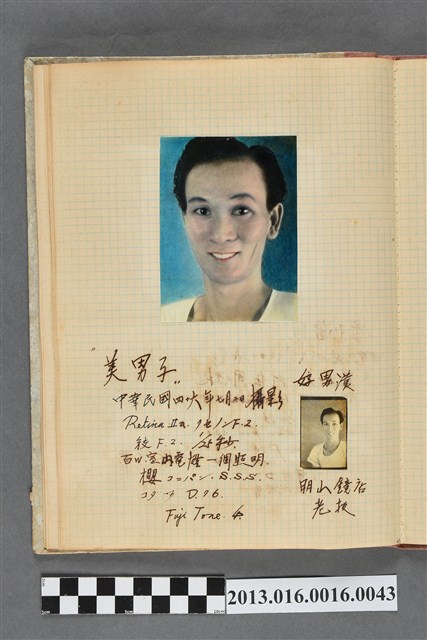 "美男子"
中華民國四六年七月二日攝影
Retina IIa. クセノンF.2.
絞 F.2. 1/25 秒
百W室内電燈一個照明
櫻 コニパン. S.S.S.
コダック D.76.
Fuji Tone 4.
好男漢
明山鏡店
老板
2013.016.0016.0043